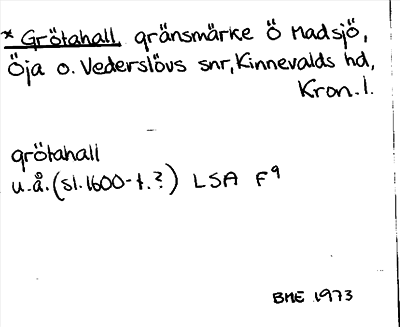 * Grötahall, gränsmärke Ö Madsjö,
Öja o. Vederslövs snr, Kinnevalds hd,
Kron. l.
grötahall
u.å. (sl. 1600-t.?) LSA F⁹
BME 1973